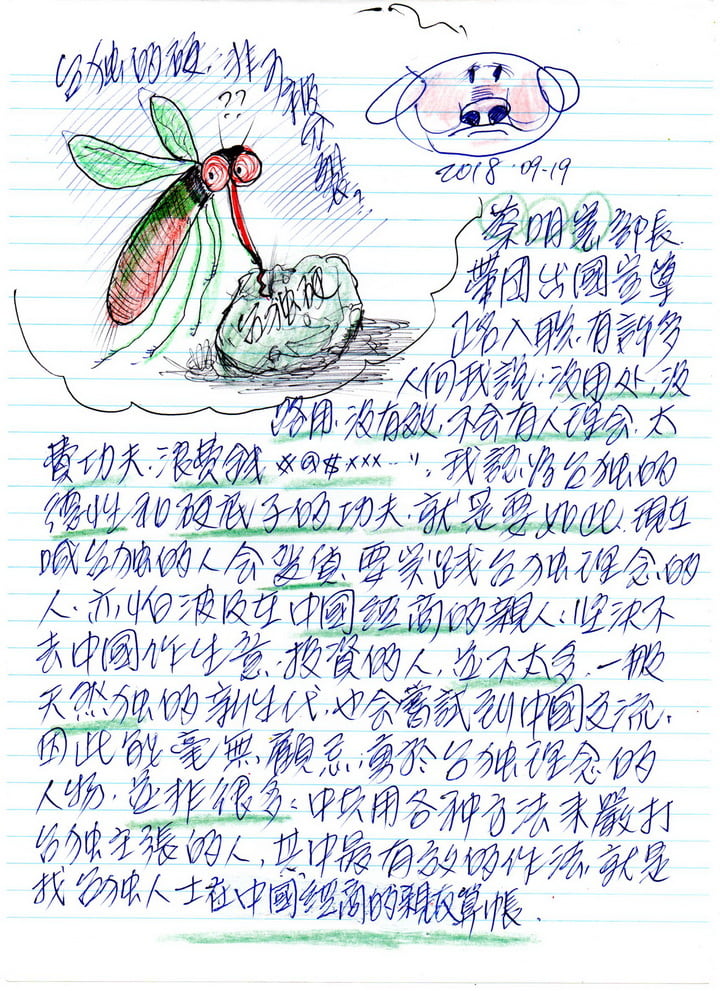 台独的硬:非为积分裂?
??
2018·09-19
台独硬
蔡明宪部長
帶团出國宣導
正名入联.有許多
人向我説:没用处,没
路用.没有效.不会有人理会.太
費功夫.浪费錢 ※@$×××…":我認為台独的
德性和硬底子的功夫.就是要如此.現在
喊台独的人会*貨*.要実践台独理念的
人.亦怕波及在中國經商的親人:坚决不
去中國作生意.投資的人.並不太多.一般
天然独的新生代.也会嘗試到中國交流.
因此能毫無顧忌.勇於台独理念的
人物.並非很多:中共用各种方法来嚴打
台独主張的人,其中最有效的作法.就是
找台独人士在中國經商的親友算帳.